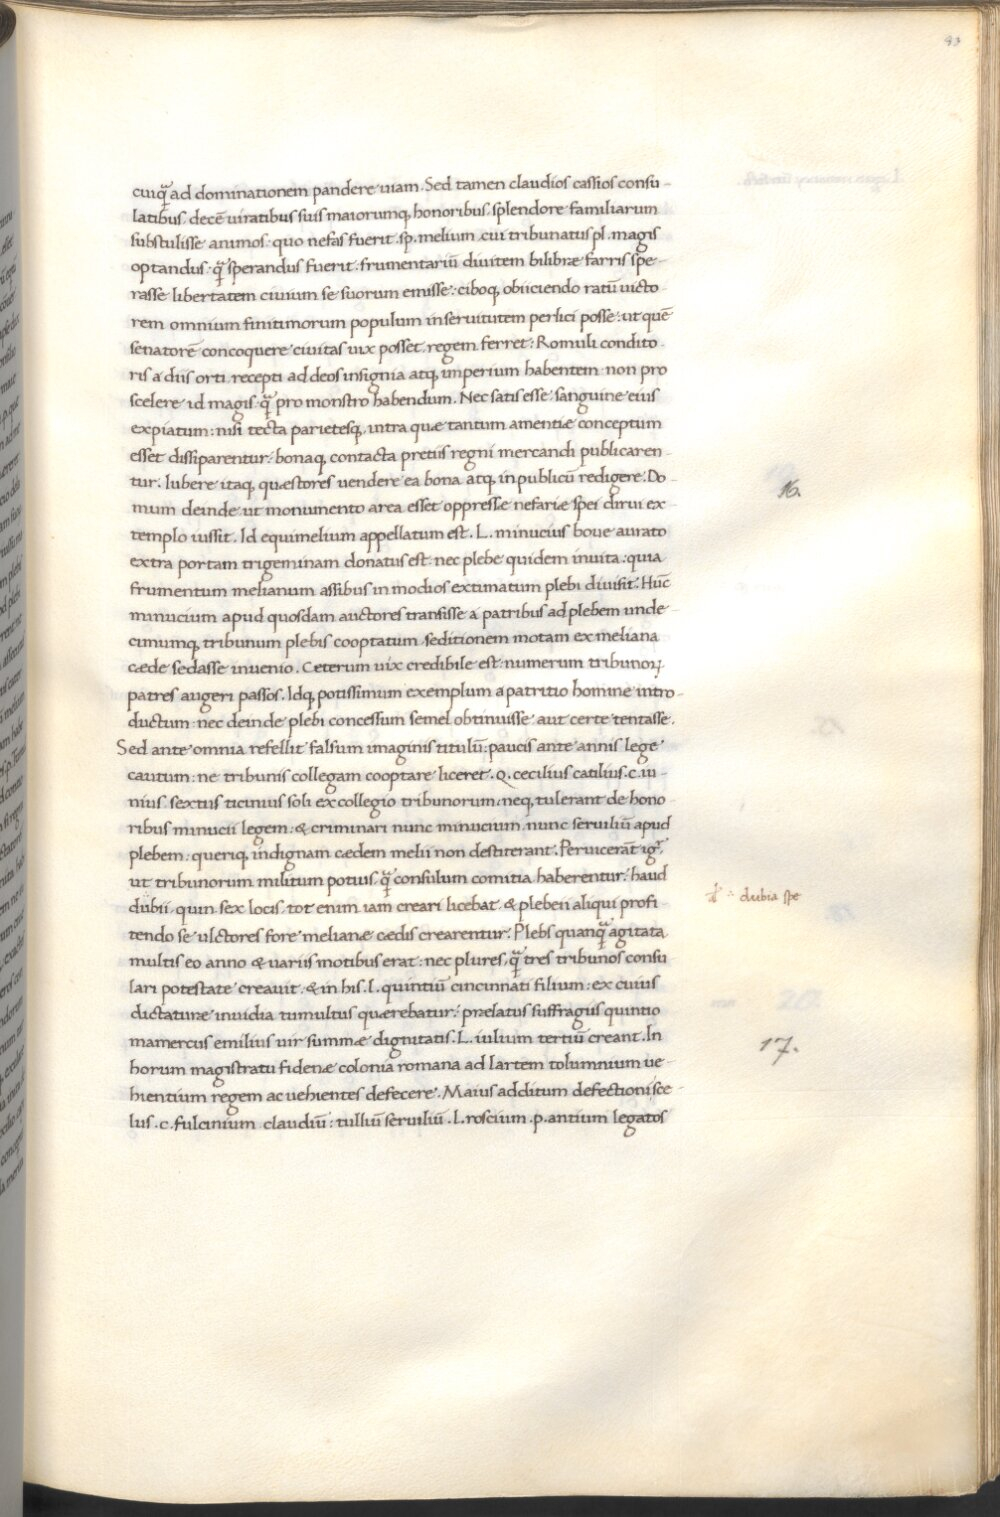 93
cuiq̄ ad dominationem pandere uiam. Sed tamen claudios cassios consu-
latibus, decē uiratibus suis maiorumq; honoribus splendore familiarum
substulisse animos: quo nefas fuerit. sp. melium. cui tribunatus pl. magis
optandus: q̄ sperandus fuerit: frumentariū diuitem bilibræ farris spe-
rasse libertatem ciuium se suorum emisse: ciboq; obiiciendo ratū uicto
rem omnium finitimorum populum in seruitutem perlici posse: ut quē
senatorē concoquere ciuitas uix posset, regem ferret: Romuli condito
ris a diis orti recepti ad deos insignia atq; imperium habentem non pro
scelere id magis q̄ pro monstro habendum. Nec satis esse sanguine eius
expiatum: nisi tecta parietesq; intra quæ tantum amentiæ conceptum
esset dissiparentur: bonaq; contacta pretiis regni mercandi publicaren
tur. Iubere itaq; quæstores uendere ea bona atq; in publicū redigere. Do-
mum deinde ut monumento area esset oppressæ nefariæ spei dirui ex-
templo iussit. Id equimelium appellatum est. L. minucius boue aurato
extra portam trigeminam donatus est nec plebe quidem inuita: quia
frumentum melianum assibus in modios extimatum plebi diuisit. Hūc
minucium apud quosdam auctores transisse a patribus ad plebem unde
cimumq; tribunum plebis cooptatum seditionem motam ex meliana
cæde sedasse inuenio. Ceterum uix credibile est numerum tribunoꝝ
patres augeri passos. Idq; potissimum exemplum a patritio homine intro-
ductum: nec deinde plebi concessum semel obtinuisse aut certe tentasse.
Sed ante omnia refellit falsum imaginis titulū: paucis ante annis lege
cautum: ne tribunis collegam cooptare liceret. Q. cecilius catilius. c. iu-
nius sextus ticinius soli ex collegio tribunorum: neq; tulerant de hono
ribus minucii legem: & criminari nunc minucium nunc seruiliū apud
plebem: queriq; indignam cædem melii non destiterant. Peruicerāt igͥ
ut tribunorum militum potius, q̄ consulum comitia haberentur: haud
dubii, quin sex locis, tot enim iam creari licebat, & pleben aliqui profi
tendo se ulctores fore melianæ cædis crearentur. Plebs quanq̄ agitata
multis eo anno & uariis motibus erat: nec plures, q̄ tres tribunos consu
lari potestate creauit. & in his. l. quintiū cincinnati filium: ex cuius
dictaturæ inuidia tumultus quærebatur: prælatus suffragiis quintio
mamercus emilius uir summæ dignitatis. L. iulium tertiū creant. In
horum magistratu fidenæ colonia romana ad lartem tolumnium ue-
hientium regem ac uehientes defecere. Maius additum defectioni sce-
lus. c. fulcinium claudiū: tulliū seruiliū. L. roscium. p. antium legatos
16.
dubia spe
17.